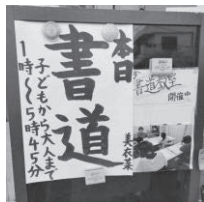 本日
書道
子どもから大人まで
1時〜5時45分
書道教室
開催中
美衣菜